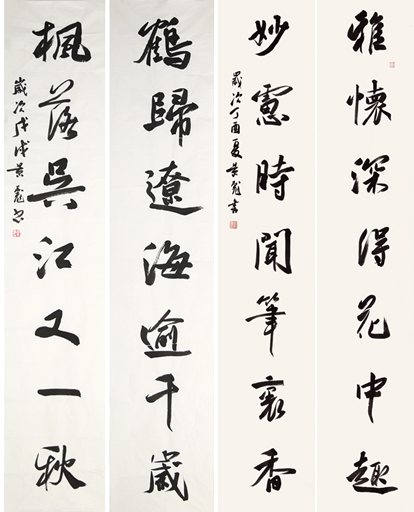 雅懷深得花中趣
妙慮時聞筆裏香
歲次丁酉夏黃書
鶴歸遼海逾千歲
楓落吳江又一秋
歲次戊戌黃